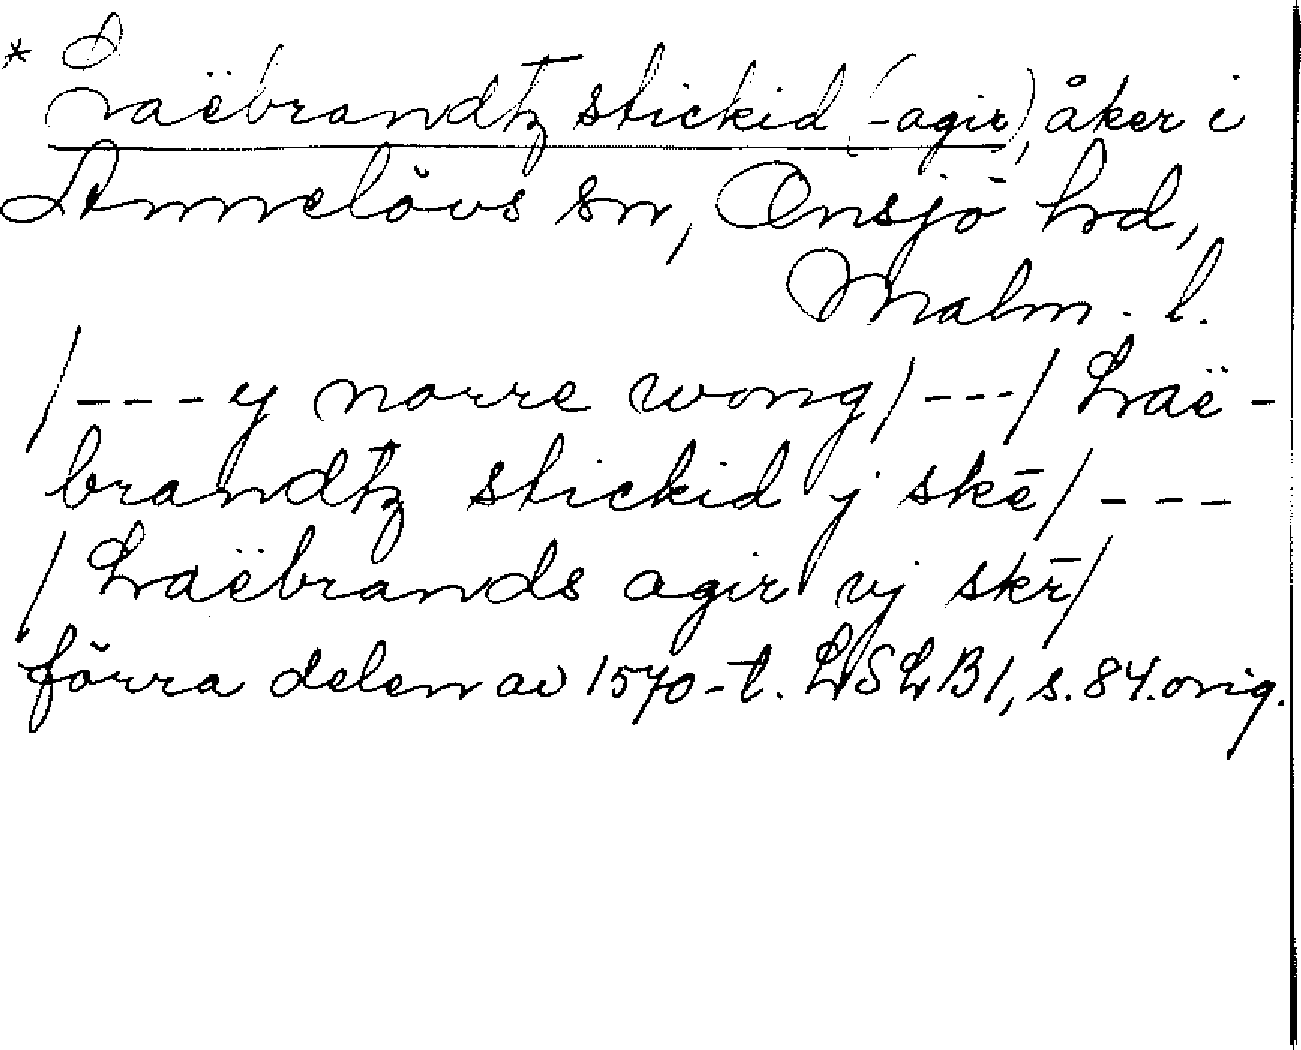 * Laëbrandtz stickid (-agir), åker i
Annelövs sn, Onsjö hd,
Malm. l.
/---y norre wong/---/ Laë-
brandtz stickid j skē/---
/ Laëbrands agir vj skē/
förra delen av 1570-t. LSLB1, s. 84. orig.